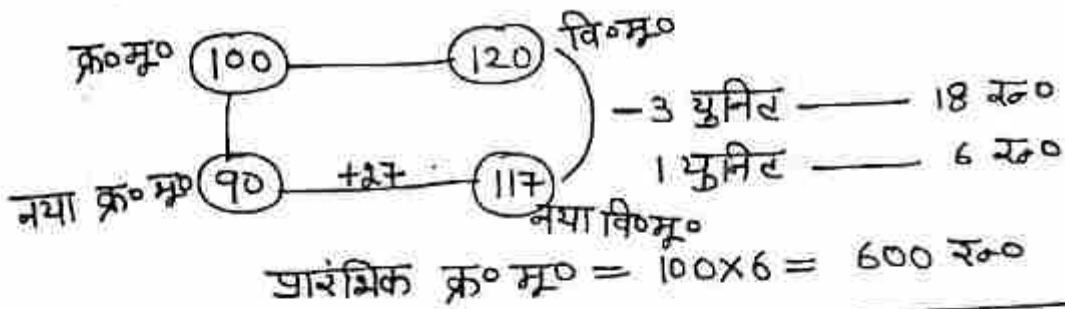 क्र०मू० 100 120 वि०मू०
- 3 युनिट —— 18 रु०
1 युनिट —— 6 रु०
नया क्र० मू० 90 +27 117 नया वि०मू०
प्रारंभिक क्र० मू० = 100×6 = 600 रु०